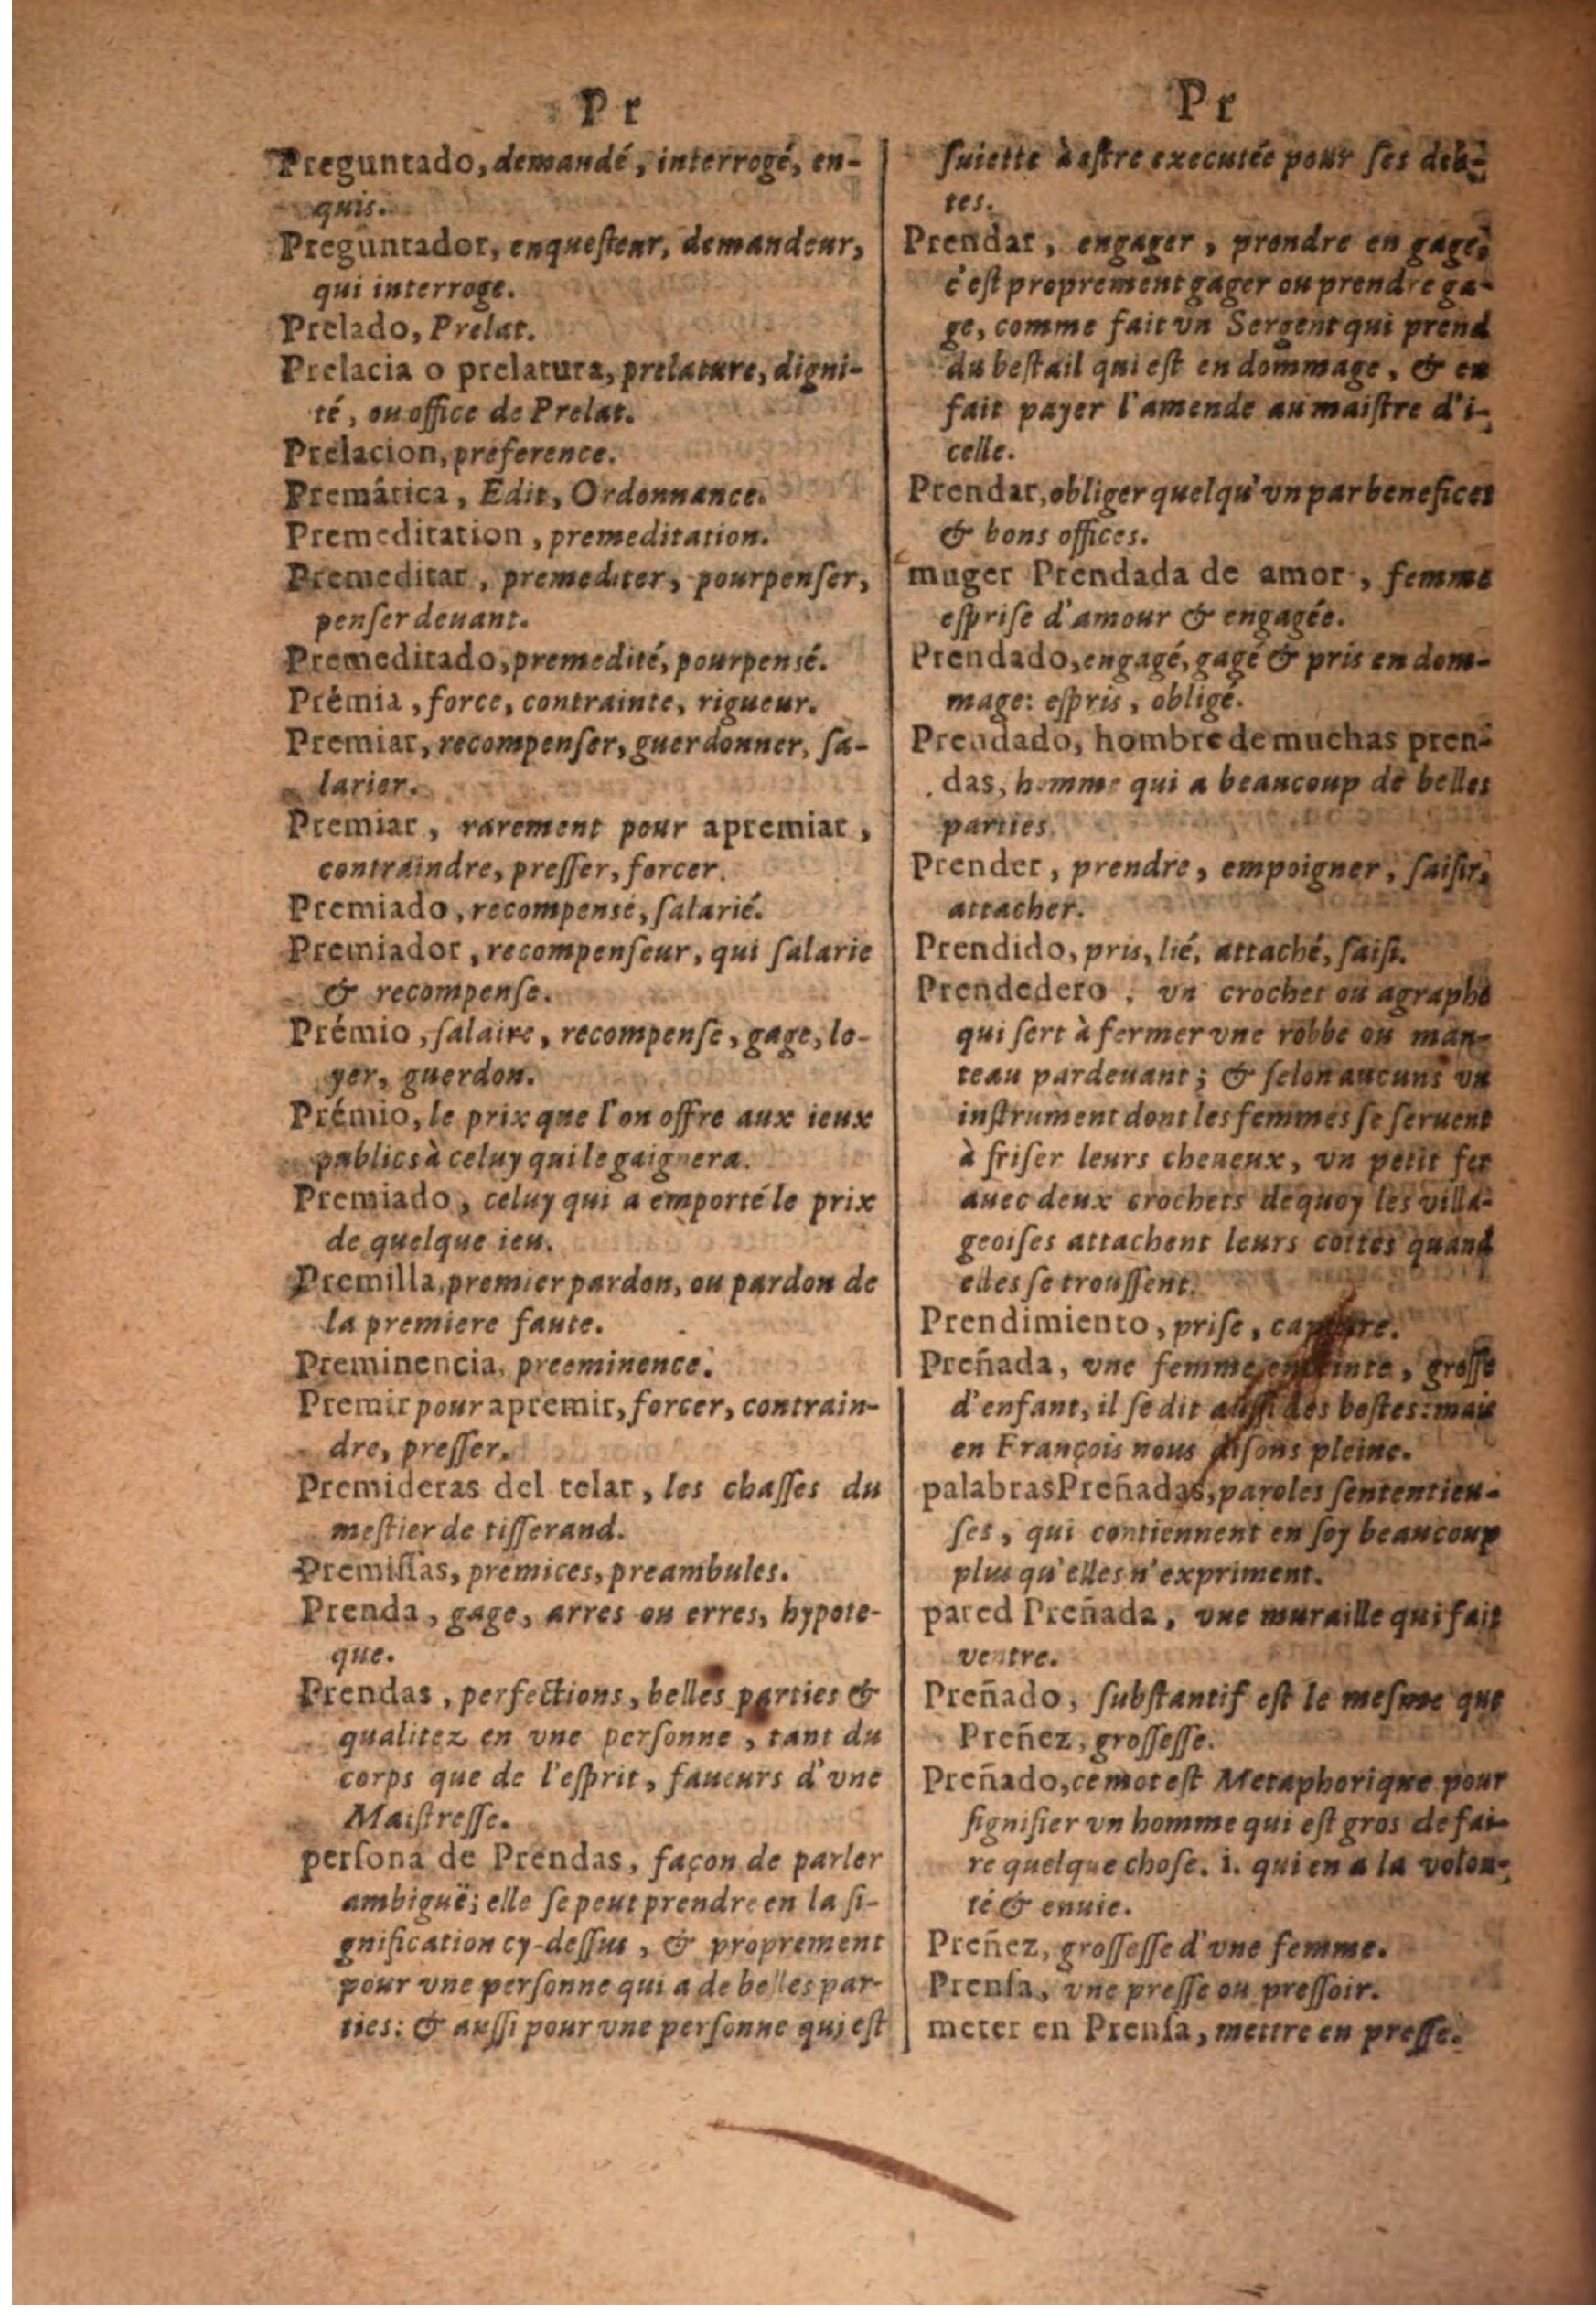 Pr
Preguntado, demandé, interrogé, en-
quis.
Preguntador, enquesteur, demandeur,
qui interroge.
Prelado, Prelat.
Prelacia o prelatura, prelature, digni-
té, ou office de Prelat.
Prelacion, preference.
Premática, Edit, Ordonnance.
Premeditation, premeditation.
Premeditar, premediter, pourpenser,
penser deuant.
Premeditado, premedité, pourpensé.
Prémia, force, contrainte, rigueur.
Premiar, recompenser, guerdonner, sa-
larier.
Premiar, rarement pour apremiar,
contraindre, presser, forcer.
Premiado, recompensé, salarié.
Premiador, recompenseur, qui salarie
& recompense.
Prémio, salaire, recompense, gage, lo-
yer, guerdon.
Prémio, le prix que l'on offre aux ieux
publics à celuy qui le gaignera.
Premiado, celuy qui a emporté le prix
de quelque ieu.
Premilla, premier pardon, ou pardon de
la premiere faute.
Preminencia, preeminence.
Premir pour apremir, forcer, contrain-
dre, presser.
Premideras del telar, les chasses du
mestier de tisserand.
Premissas, premices, preambules.
Prenda, gage, arres ou erres, hypote-
que.
Prendas, perfections, belles parties &
qualitez en vne personne, tant du
corps que de l'esprit, faueurs d'vne
Maistresse.
persona de Prendas, façon de parler
ambiguë; elle se peut prendre en la si-
gnification cy-dessus, & proprement
pour vne personne qui a de belles par-
ties: & aussi pour vne personne qui est
Pr
suiette à estre executée pour ses deb-
tes.
Prendar, engager, prendre en gage,
c'est proprement gager ou prendre ga-
ge, comme fait vn Sergent qui prend
du bestail qui est en dommage, & en
fait payer l'amende au maistre d'i-
celle.
Prendar, obliger quelqu'vn par benefices
& bons offices.
muger Prendada de amor, femme
esprise d'amour & engagée.
Prendado, engagé, gagé & pris en dom-
mage: espris, obligé.
Prendado, hombre de muchas pren-
das, homme qui a beaucoup de belles
parties.
Prender, prendre, empoigner, saisir,
attacher.
Prendido, pris, lié, attaché, saisi.
Prendedero, vn crochet ou agraphe
qui sert à fermer vne robbe ou man-
teau pardeuant; & selon aucuns vn
instrument dont les femmes se seruent
à friser leurs cheueux, vn petit fer
auec deux crochets dequoy les villa-
geoises attachent leurs cottes quand
elles se troussent.
Prendimiento, prise, capture.
Preñada, vne femme enceinte, grosse
d'enfant, il se dit aussi des bestes: mais
en François nous disons pleine.
palabras Preñadas, paroles sententieu-
ses, qui contiennent en soy beaucoup
plus qu'elles n'expriment.
pared Preñada, vne muraille qui fait
ventre.
Preñado, substantif est le mesme que
Preñez, grossesse.
Preñado, ce mot est Metaphorique pour
signifier vn homme qui est gros de fai-
re quelque chose. i. qui en a la volon-
té & enuie.
Preñez, grossesse d'vne femme.
Prensa, vne presse ou pressoir.
meter en Prensa, mettre en presse.